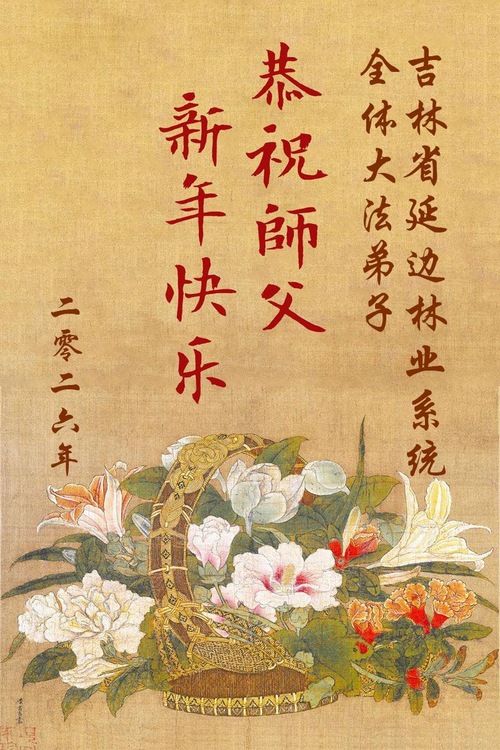 吉林省延边林业系统
全体大法弟子
恭祝師父
新年快乐
二零二六年